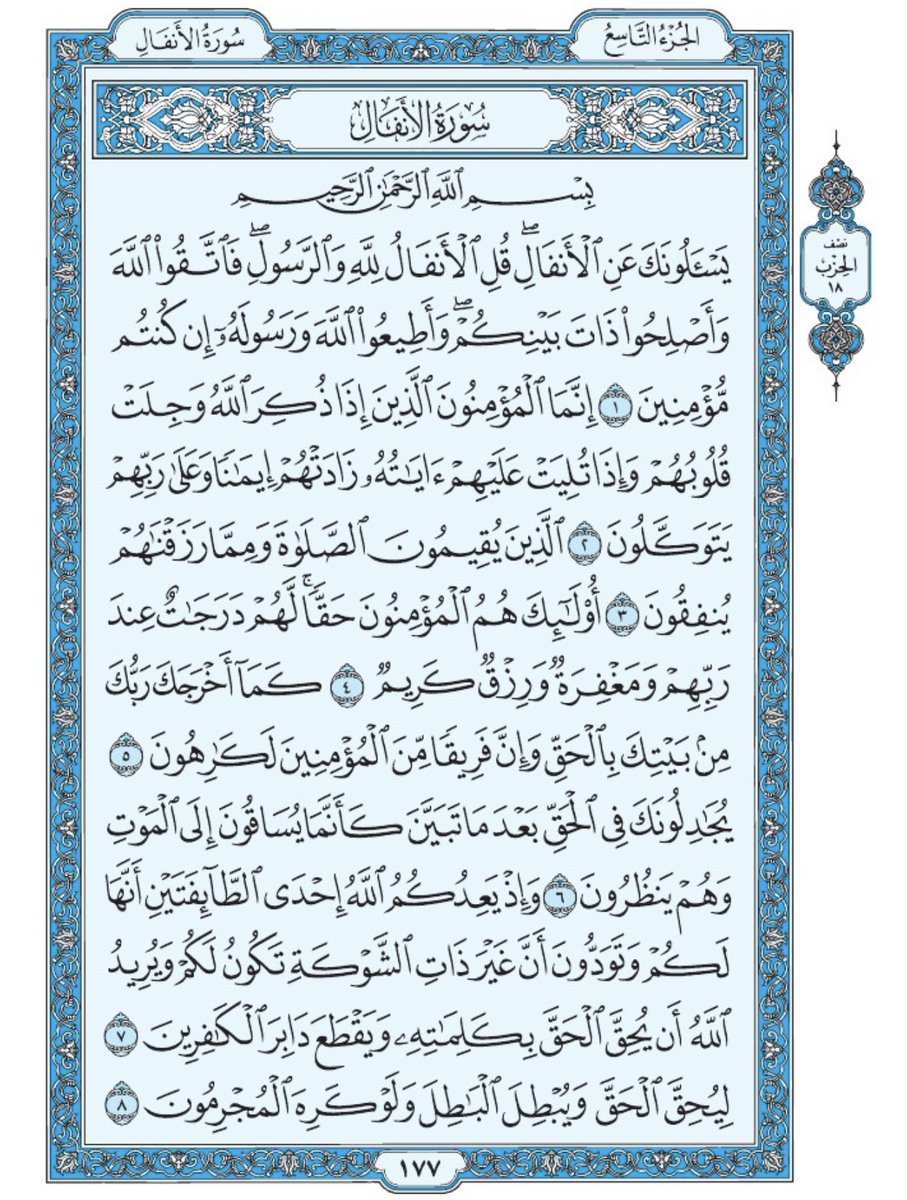 الجُزْءُ التَّاسِعُ
سُورَةُ الأَنفَالِ
سُورَةُ الأَنفَالِ
بِسْمِ ٱللَّهِ ٱلرَّحْمَٰنِ ٱلرَّحِيمِ
يَسْـَٔلُونَكَ عَنِ ٱلْأَنفَالِۖ قُلِ ٱلْأَنفَالُ لِلَّهِ وَٱلرَّسُولِۖ فَٱتَّقُوا۟ ٱللَّهَ
وَأَصْلِحُوا۟ ذَاتَ بَيْنِكُمْۖ وَأَطِيعُوا۟ ٱللَّهَ وَرَسُولَهُۥٓ إِن كُنتُم
مُّؤْمِنِينَ ١ إِنَّمَا ٱلْمُؤْمِنُونَ ٱلَّذِينَ إِذَا ذُكِرَ ٱللَّهُ وَجِلَتْ
قُلُوبُهُمْ وَإِذَا تُلِيَتْ عَلَيْهِمْ ءَايَٰتُهُۥ زَادَتْهُمْ إِيمَٰنًا وَعَلَىٰ رَبِّهِمْ
يَتَوَكَّلُونَ ٢ ٱلَّذِينَ يُقِيمُونَ ٱلصَّلَوٰةَ وَمِمَّا رَزَقْنَٰهُمْ
يُنفِقُونَ ٣ أُو۟لَٰٓئِكَ هُمُ ٱلْمُؤْمِنُونَ حَقًّاۚ لَّهُمْ دَرَجَٰتٌ عِندَ
رَبِّهِمْ وَمَغْفِرَةٌ وَرِزْقٌ كَرِيمٌ ٤ كَمَآ أَخْرَجَكَ رَبُّكَ
مِنۢ بَيْتِكَ بِٱلْحَقِّ وَإِنَّ فَرِيقًا مِّنَ ٱلْمُؤْمِنِينَ لَكَٰرِهُونَ ٥
يُجَٰدِلُونَكَ فِى ٱلْحَقِّ بَعْدَ مَا تَبَيَّنَ كَأَنَّمَا يُسَاقُونَ إِلَى ٱلْمَوْتِ
وَهُمْ يَنظُرُونَ ٦ وَإِذْ يَعِدُكُمُ ٱللَّهُ إِحْدَى ٱلطَّآئِفَتَيْنِ أَنَّهَا
لَكُمْ وَتَوَدُّونَ أَنَّ غَيْرَ ذَاتِ ٱلشَّوْكَةِ تَكُونُ لَكُمْ وَيُرِيدُ
ٱللَّهُ أَن يُحِقَّ ٱلْحَقَّ بِكَلِمَٰتِهِۦ وَيَقْطَعَ دَابِرَ ٱلْكَٰفِرِينَ ٧
لِيُحِقَّ ٱلْحَقَّ وَيُبْطِلَ ٱلْبَٰطِلَ وَلَوْ كَرِهَ ٱلْمُجْرِمُونَ ٨
نصف
الحِزْب
١٨
١٧٧